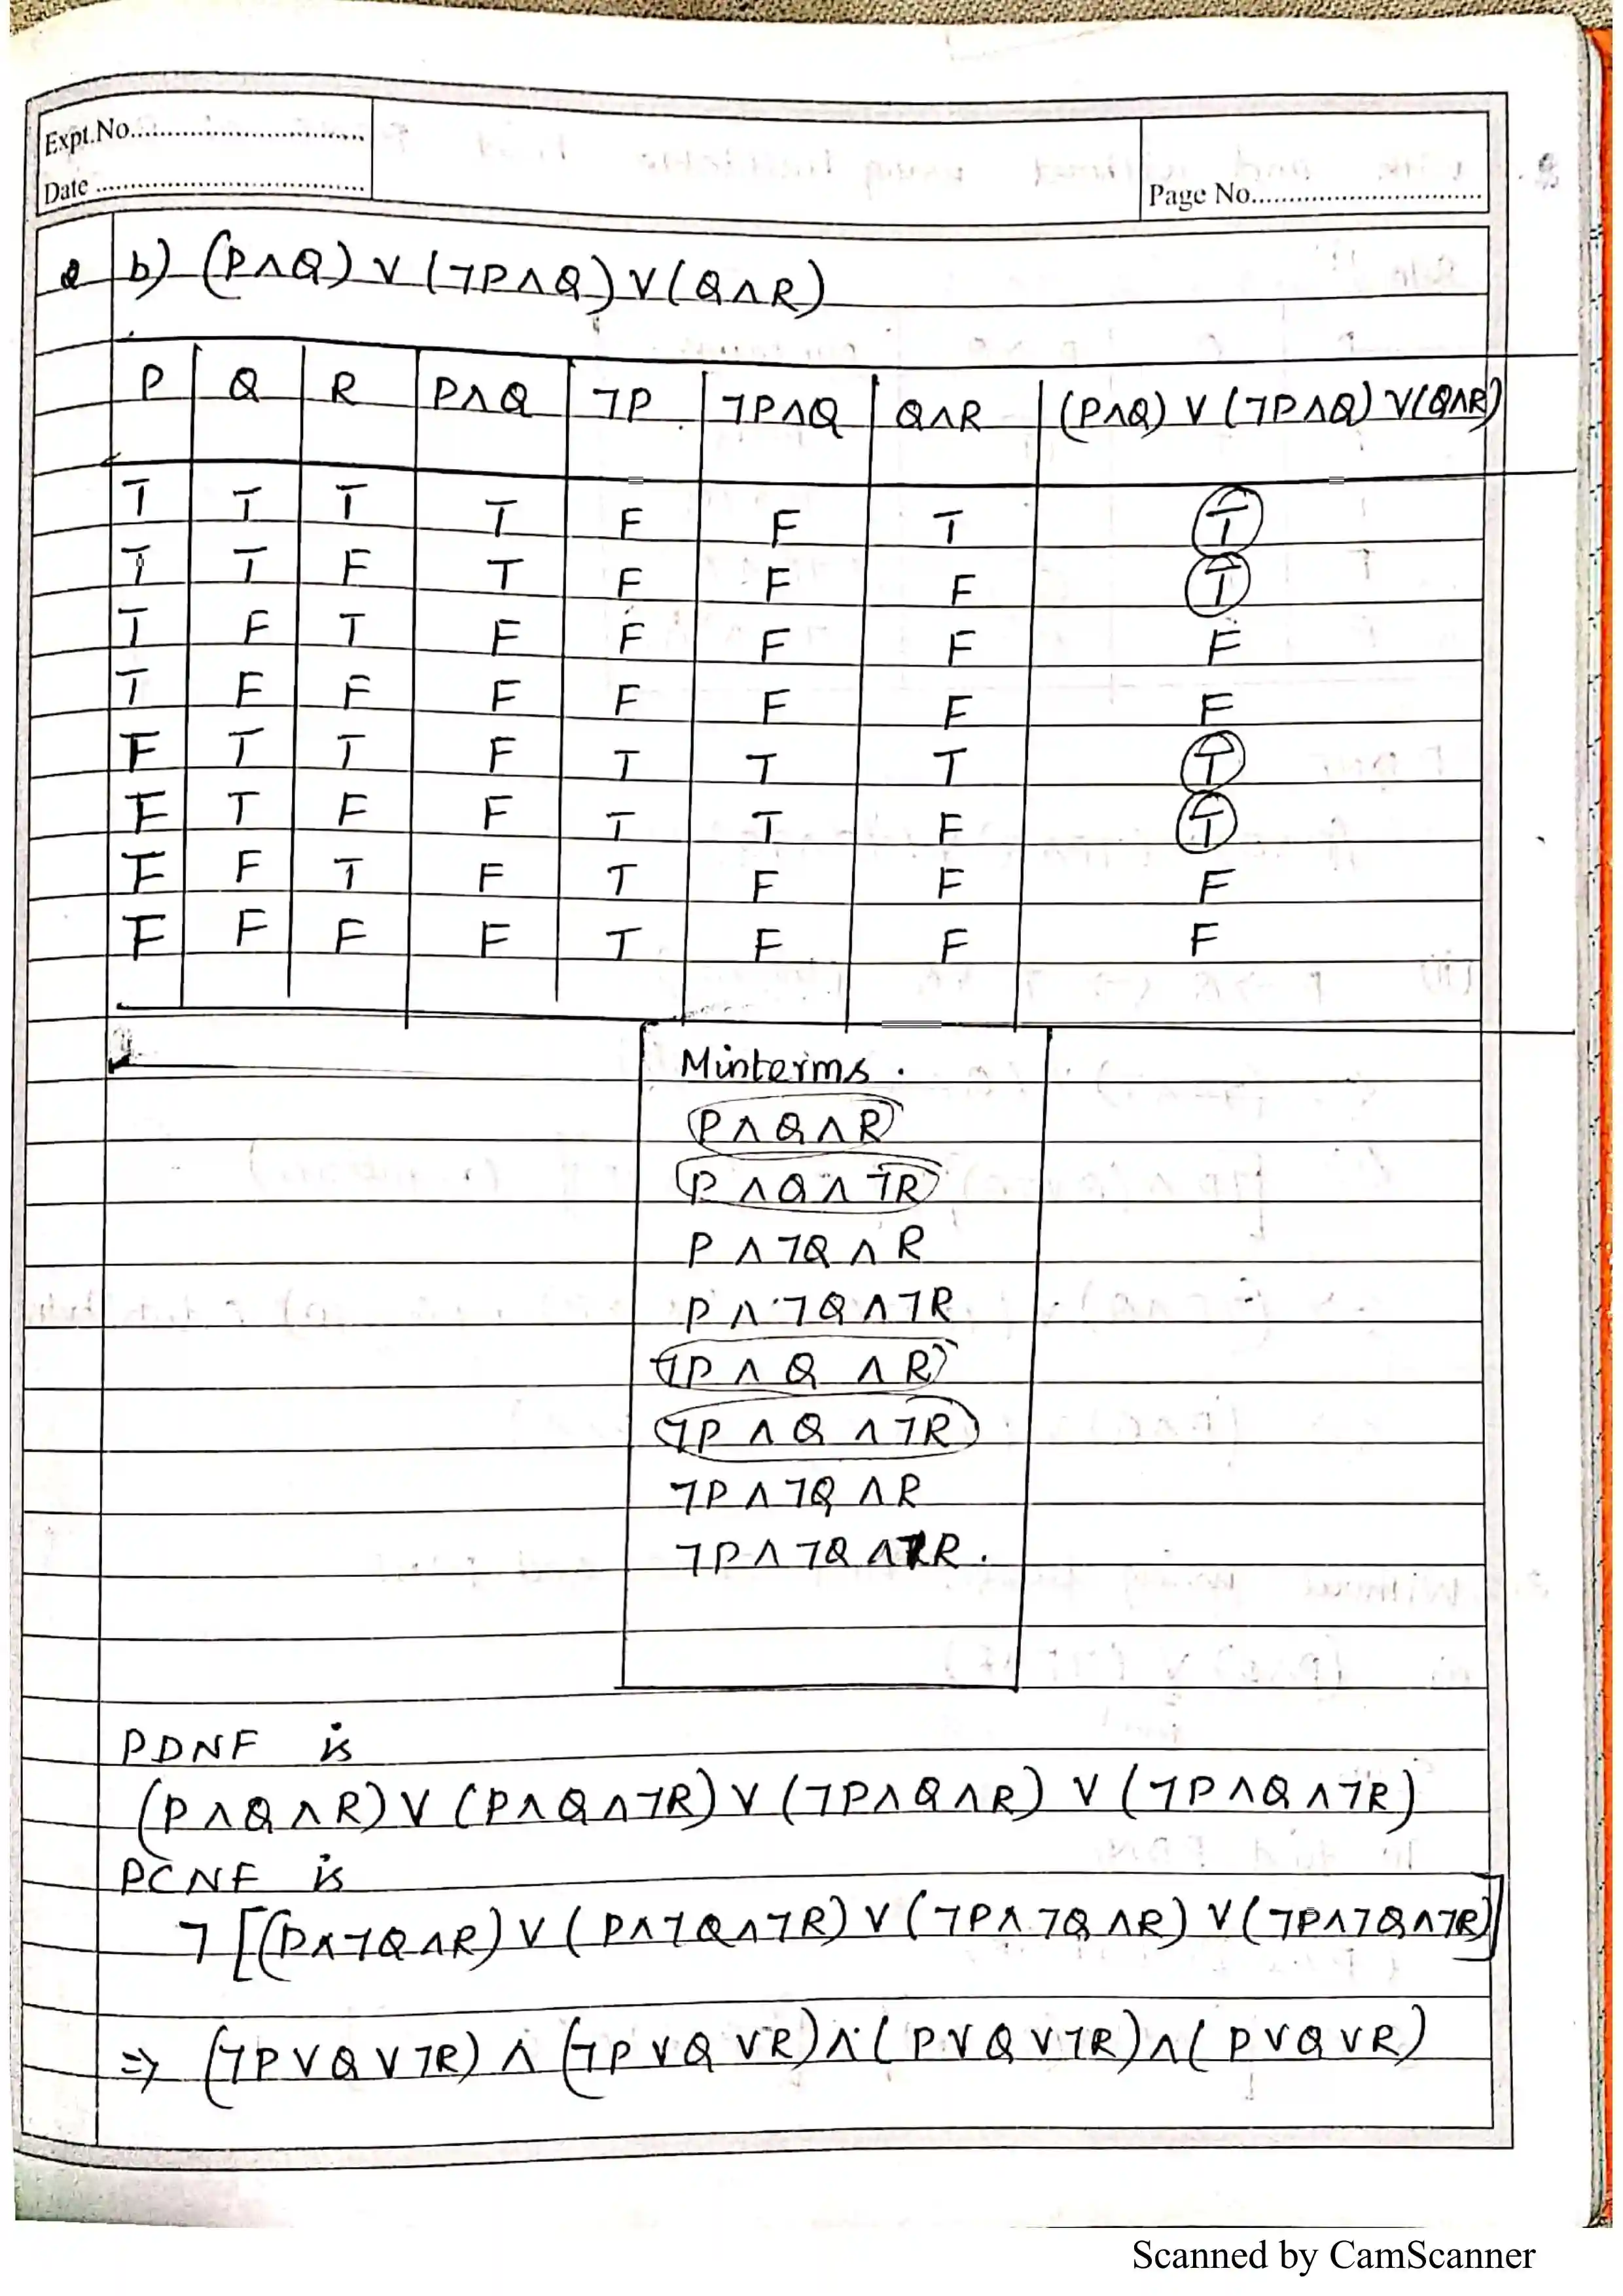 Expt.No.
Date
Page No.
2 b) (P∧Q) ∨ (¬P∧Q) ∨ (Q∧R)
P Q R P∧Q ¬P ¬P∧Q Q∧R (P∧Q) ∨ (¬P∧Q) ∨(Q∧R)
T T T T F F T T
T T F T F F F T
T F T F F F F F
T F F F F F F F
F T T F T T T T
F T F F T T F T
F F T F T F F F
F F F F T F F F
Minterms.
P∧Q∧R
P∧Q∧¬R
P∧¬Q∧R
P∧¬Q∧¬R
¬P∧Q∧R
¬P∧Q∧¬R
¬P∧¬Q∧R
¬P∧¬Q∧¬R.
PDNF is
(P∧Q∧R) ∨ (P∧Q∧¬R) ∨ (¬P∧Q∧R) ∨ (¬P∧Q∧¬R)
PCNF is
¬[(P∧¬Q∧R) ∨ (P∧¬Q∧¬R) ∨ (¬P∧¬Q∧R) ∨ (¬P∧¬Q∧¬R)]
⇒ (¬P∨Q∨¬R) ∧ (¬P∨Q∨R) ∧ (P∨Q∨¬R) ∧ (P∨Q∨R)
Scanned by CamScanner